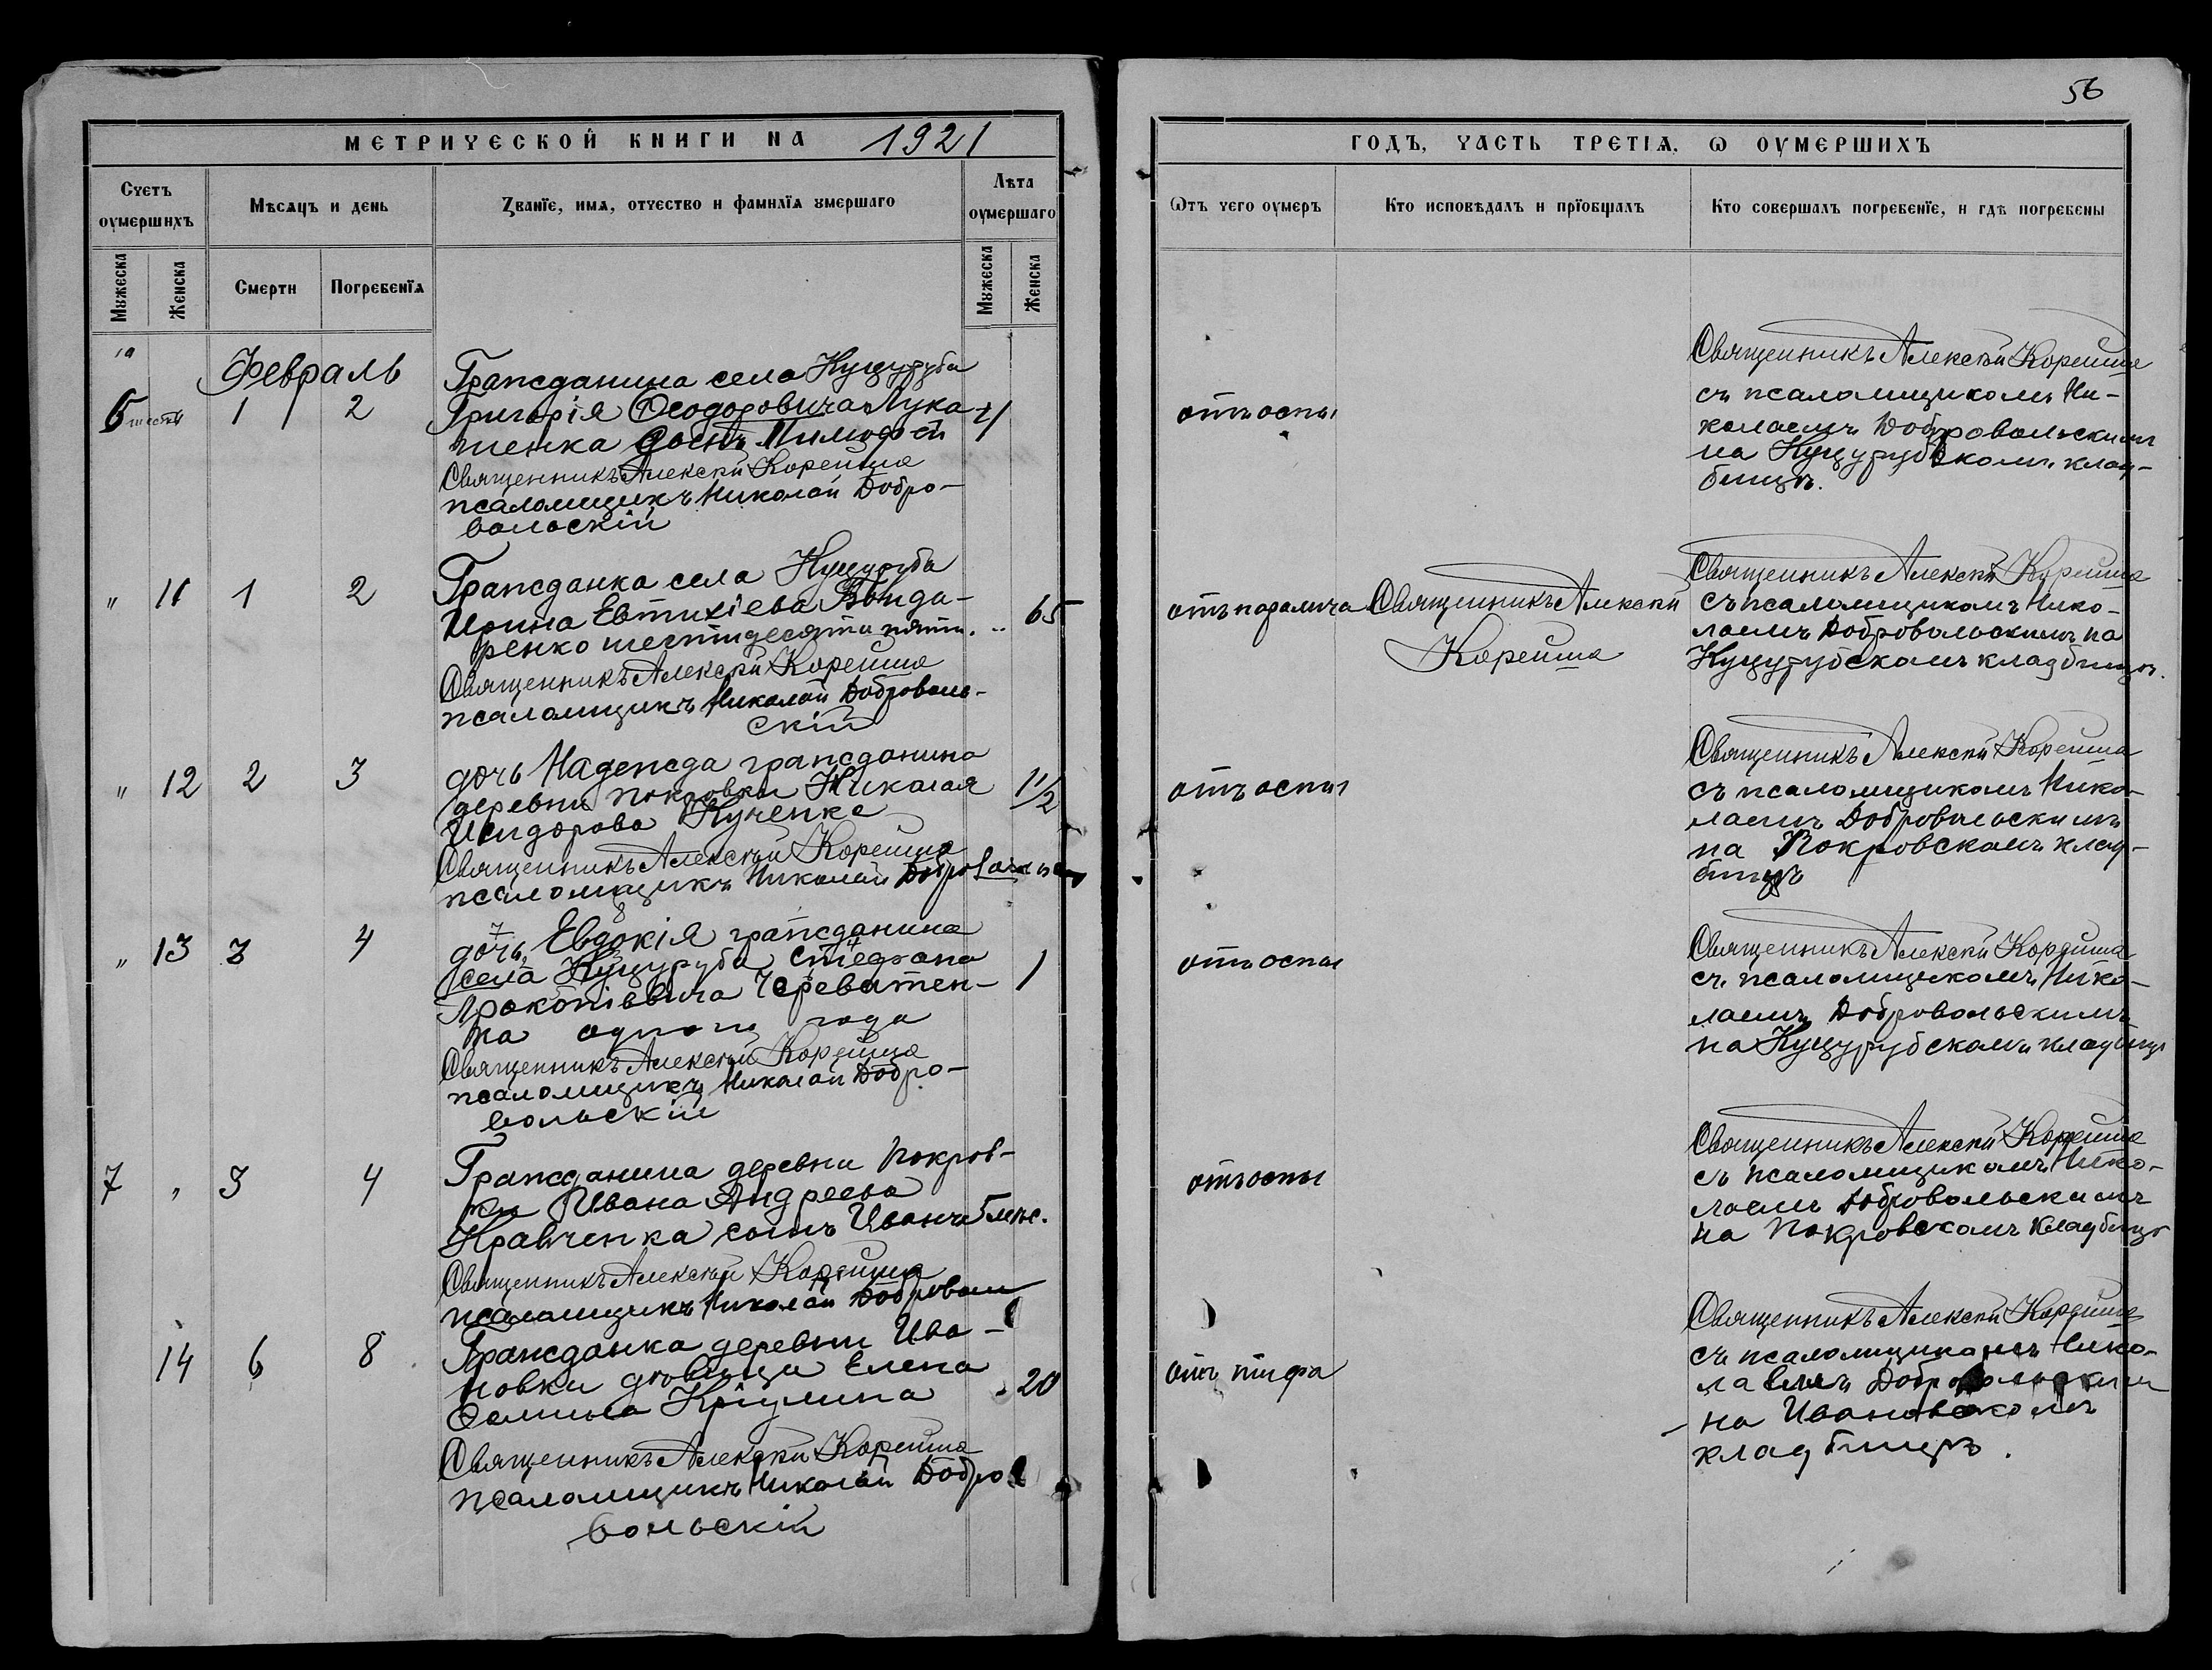 56
МЕТРИЧЕСКОЙ КНИГИ НА 1921
ГОДЪ, ЧАСТЬ ТРЕТІѦ, Ѡ ОУМЕРШИХЪ
Счетъ оумершихъ
Мѣсѧцъ и день
Званїе, имѧ, отчество и фамилїѧ умершаго
Лѣта оумершаго
Ѿтъ чего оумеръ
Кто исповѣдалъ и прїобщалъ
Кто совершалъ погребенїе, и гдѣ погребены
Мужеска
Женска
Смерти
Погребенїѧ
Мужеска
Женска
Февраль
6 1 2
Гражданина села Куцуруба
Григорія Ѳеодоровича Лука-
шенка
Священникъ Алексѣй Корейша
псаломщикъ Николай Добро-
вольскій
отъ оспы
Священникъ Алексѣй Корейша
съ псаломщикомъ Ни-
колаемъ Добровольскимъ
на Куцурубскомъ клад-
бищѣ.
" 11 1 2
Гражданка села Куцуруба
Ирина Евтихіева Бонда-
ренко шестидесяти пяти. " 65
Священникъ Алексѣй Корейша
псаломщикъ Николай Доброволь-
скій
отъ паралича
Священникъ Алексѣй
Корейша
Священникъ Алексѣй Корейша
съ псаломщикомъ Нико-
лаемъ Добровольскимъ на
Куцурубскомъ кладбищѣ.
" 12 2 3
дочь Надежда гражданина
деревни Покровки Николая 1 1/2
Исидорова Кученко
Священникъ Алексѣй Корейша
псаломщикъ Николай
отъ оспы
Священникъ Алексѣй Корейша
съ псаломщикомъ Нико-
лаемъ Добровольскимъ
на Покровскомъ клад-
бищѣ
" 13 3 4
дочь Евдокія гражданина
села Куцуруба Стефана
Прокопіевича Череватен- 1
ка одного года
Священникъ Алексѣй Корейша
псаломщикъ Николай Добро-
вольскій
отъ оспы
Священникъ Алексѣй Корейша
съ псаломщикомъ Нико-
лаемъ Добровольскимъ
на Куцурубскомъ кладбищѣ
7 " 3 4
Гражданина деревни Покров-
ки Ивана Андреева
Кравченка сынъ Иванъ 5 мѣс.
Священникъ Алексѣй Корейша
псаломщикъ Николай Доброволь
отъ оспы
Священникъ Алексѣй Корейша
съ псаломщикомъ Нико-
лаемъ Добровольскимъ
на Покровскомъ кладбищѣ
14 6 8
Гражданка деревни Ива-
новки дѣвица Елена
20
Священникъ Алексѣй Корейша
псаломщикъ Николай Добро
вольскій
отъ тифа
Священникъ Алексѣй Корейша
съ псаломщикомъ Нико-
лаемъ Добровольскимъ
на Ивановскомъ
кладбищѣ.